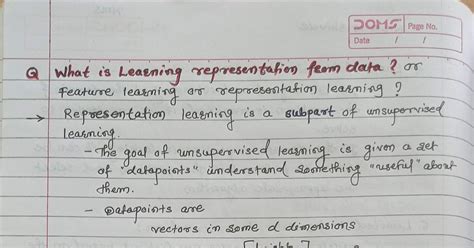 DOMS
Page No.
Date / /
Q What is Learning representation from data? or
Feature learning or representation learning?
→ Representation learning is a subpart of unsupervised
learning.
- The goal of unsupervised learning is given a set
of "datapoints" understand something "useful" about
them.
- Datapoints are
vectors in some d dimensions